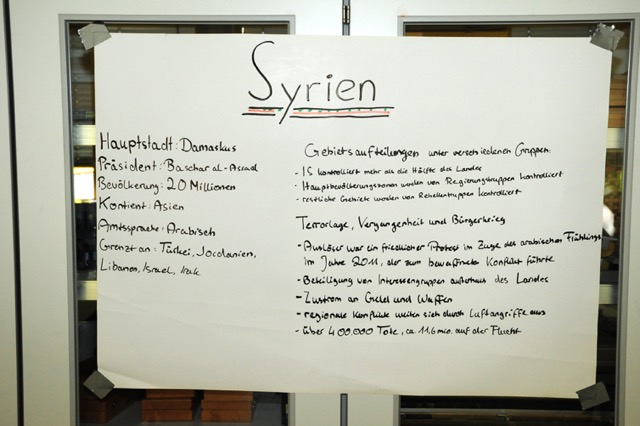 Syrien
Hauptstadt: Damaskus
Präsident: Baschar al-Assad
Bevölkerung: 20 Millionen
Kontient: Asien
Amtssprache: Arabisch
Grenzt an: Türkei, Jordanien,
Libanon, Israel, Irak
Gebietsaufteilungen unter verschiedenen Gruppen:
- IS kontrolliert mehr als die Hälfte des Landes
- Hauptbevölkerungszonen werden von Regierungstruppen kontrolliert
- restliche Gebiete werden von Rebellentruppen kontrolliert
Terrorlage, Vergangenheit und Bürgerkrieg
- Auslöser war ein friedlicher Protest im Zuge des arabischen Frühlings
im Jahre 2011, der zum bewaffneten Konflikt führte
- Beteiligung von Interessengruppen außerhalb des Landes
- Zustrom an Geld und Waffen
- regionale Konflikte weiten sich durch Luftangriffe aus
- über 400.000 Tote, ca. 11,6 mio. auf der Flucht